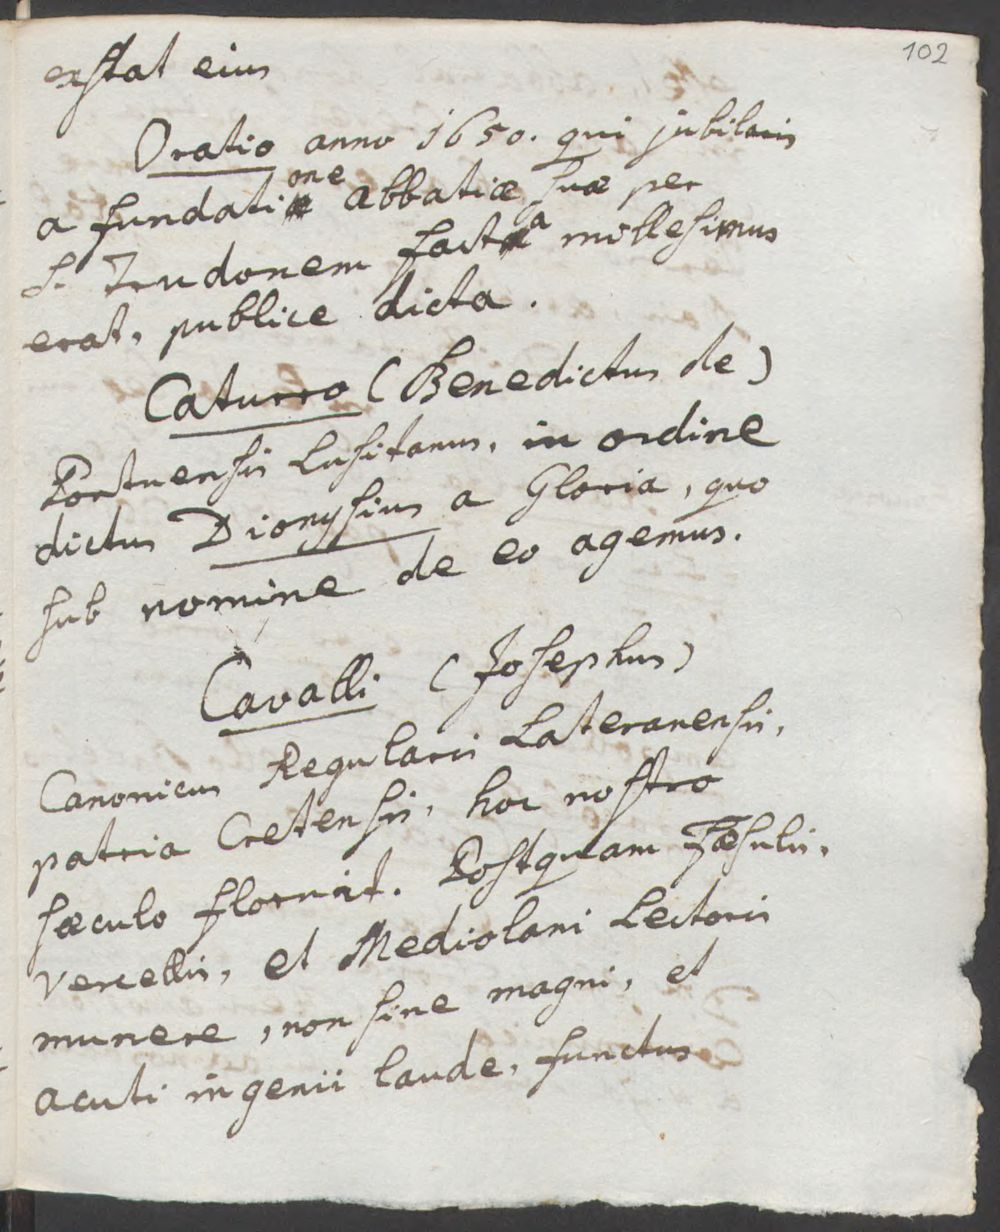 102
exstat eius
Oratio anno 1650. qui jubilaris
a fundatione abbatiæ suæ per
S. Trudonem facta millesimus
erat, publice dicta.
Caturro (Benedictus de)
Portuensis Lusitanus, in ordine
dictus Dionysius a Gloria, quo
sub nomine de eo agemus.
Cavalli (Josephus)
Canonicus Regularis Lateranensis,
patria Cretensis, hoc nostro
sæculo floruit. Postquam Fæsulis,
Vercellis, et Mediolani Lectoris
munere, non sine magni, et
acuti ingenii laude, functus